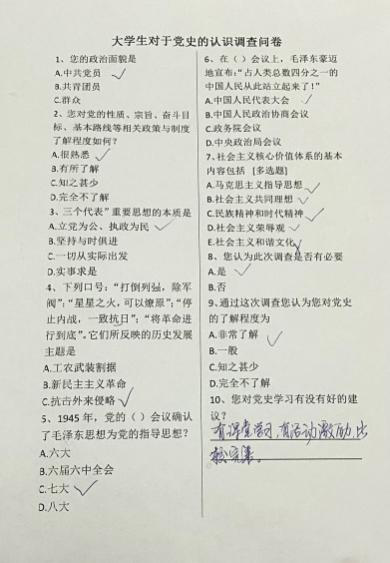 大学生对于党史的认识调查问卷
1、您的政治面貌是
A.中共党员 ✓
B.共青团员
C.群众
2、您对党的性质、宗旨、奋斗目
标、基本路线等相关政策与制度
了解程度如何？
A.很熟悉 ✓
B.有所了解
C.知之甚少
D.完全不了解
3、三个代表”重要思想的本质是
A.立党为公、执政为民 ✓
B.坚持与时俱进
C.一切从实际出发
D.实事求是
4、下列口号：“打倒列强，除军
阀”；“星星之火，可以燎原”；“停
止内战，一致抗日”；“将革命进
行到底”。它们所反映的历史发展
主题是
A.工农武装割据
B.新民主主义革命
C.抗击外来侵略 ✓
5、1945 年，党的（ ）会议确认
了毛泽东思想为党的指导思想？
A.六大
B.六届六中全会
C.七大 ✓
D.八大
6、在（ ）会议上，毛泽东豪迈
地宣布：“占人类总数四分之一的
中国人民从此站立起来了！”
A.中国人民代表大会 ✓
B.中国人民政治协商会议
C.政务院会议
D.中央政治局会议
7、社会主义核心价值体系的基本
内容包括 [多选题]
A.马克思主义指导思想 ✓
B.社会主义共同理想 ✓
C.民族精神和时代精神 ✓
D.社会主义荣辱观 ✓
E.社会主义和谐文化
8、您认为此次调查是否有必要
A.是 ✓
B.否
9、通过这次调查您认为您对党史
的了解程度为
A.非常了解 ✓
B.一般
C.知之甚少
D.完全不了解
10、您对党史学习有没有好的建
议？
有课堂学习，有活动激励，比
较完善。